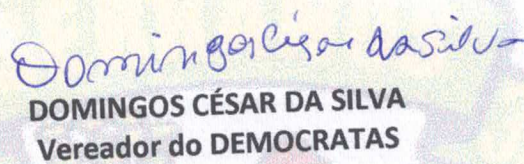 Domingos César da Silva
DOMINGOS CÉSAR DA SILVA
Vereador do DEMOCRATAS